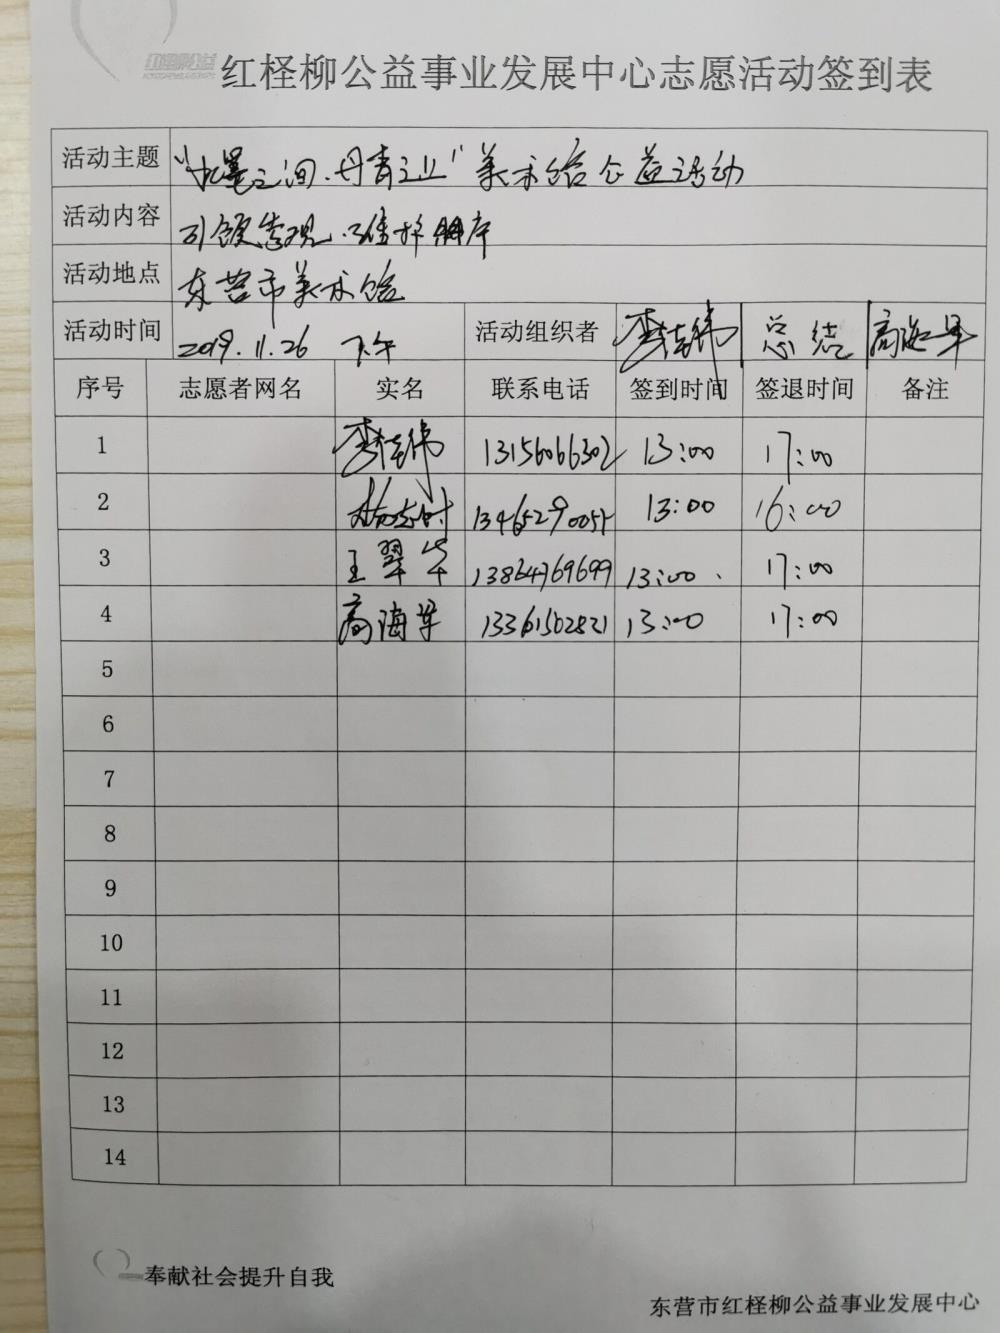 红柽柳公益
红柽柳公益事业发展中心志愿活动签到表
活动主题 "水墨之间.丹青之上"美术馆公益活动
活动内容 引领参观.维持秩序
活动地点 东营市美术馆
活动时间 2019.11.26 下午 活动组织者 李 伟 总结 高海军
序号 志愿者网名 实名 联系电话 签到时间 签退时间 备注
1 李 伟 13156066302 13:00 17:00
2 杨 时 13:00 16:00
3 王翠华 13864769699 13:00 17:00
4 高海军 13361502821 13:00 17:00
5
6
7
8
9
10
11
12
13
14
奉献社会提升自我
东营市红柽柳公益事业发展中心